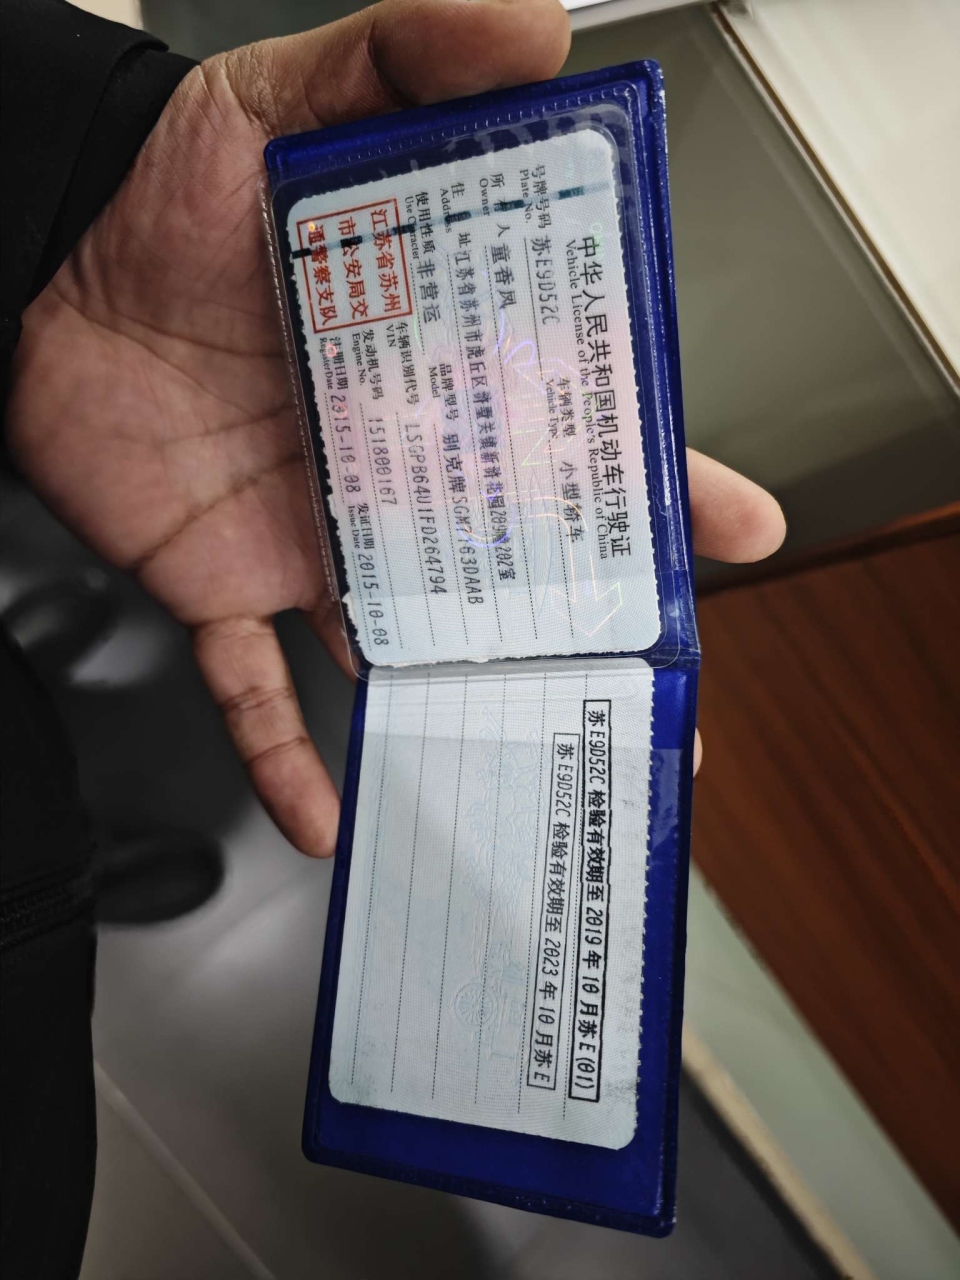 中华人民共和国机动车行驶证
Vehicle License of the People's Republic of China
号牌号码 苏E9D52C 车辆类型 小型轿车
Plate No. Vehicle Type
所有人 童香凤
Owner
住址 江苏省苏州市虎丘区浒墅关镇新浒花园289幢202室
Address
使用性质 非营运 品牌型号 别克牌SGM7163DAAB
Use Character Model
江苏省苏州
市公安局交
通警察支队
车辆识别代号 LSGPB64U1FD264794
VIN
发动机号码 151800167
Engine No.
注册日期 2015-10-08 发证日期 2015-10-08
Register Date Issue Date
苏E9D52C 检验有效期至 2019年10月苏E(01)
苏E9D52C 检验有效期至 2023年10月苏E